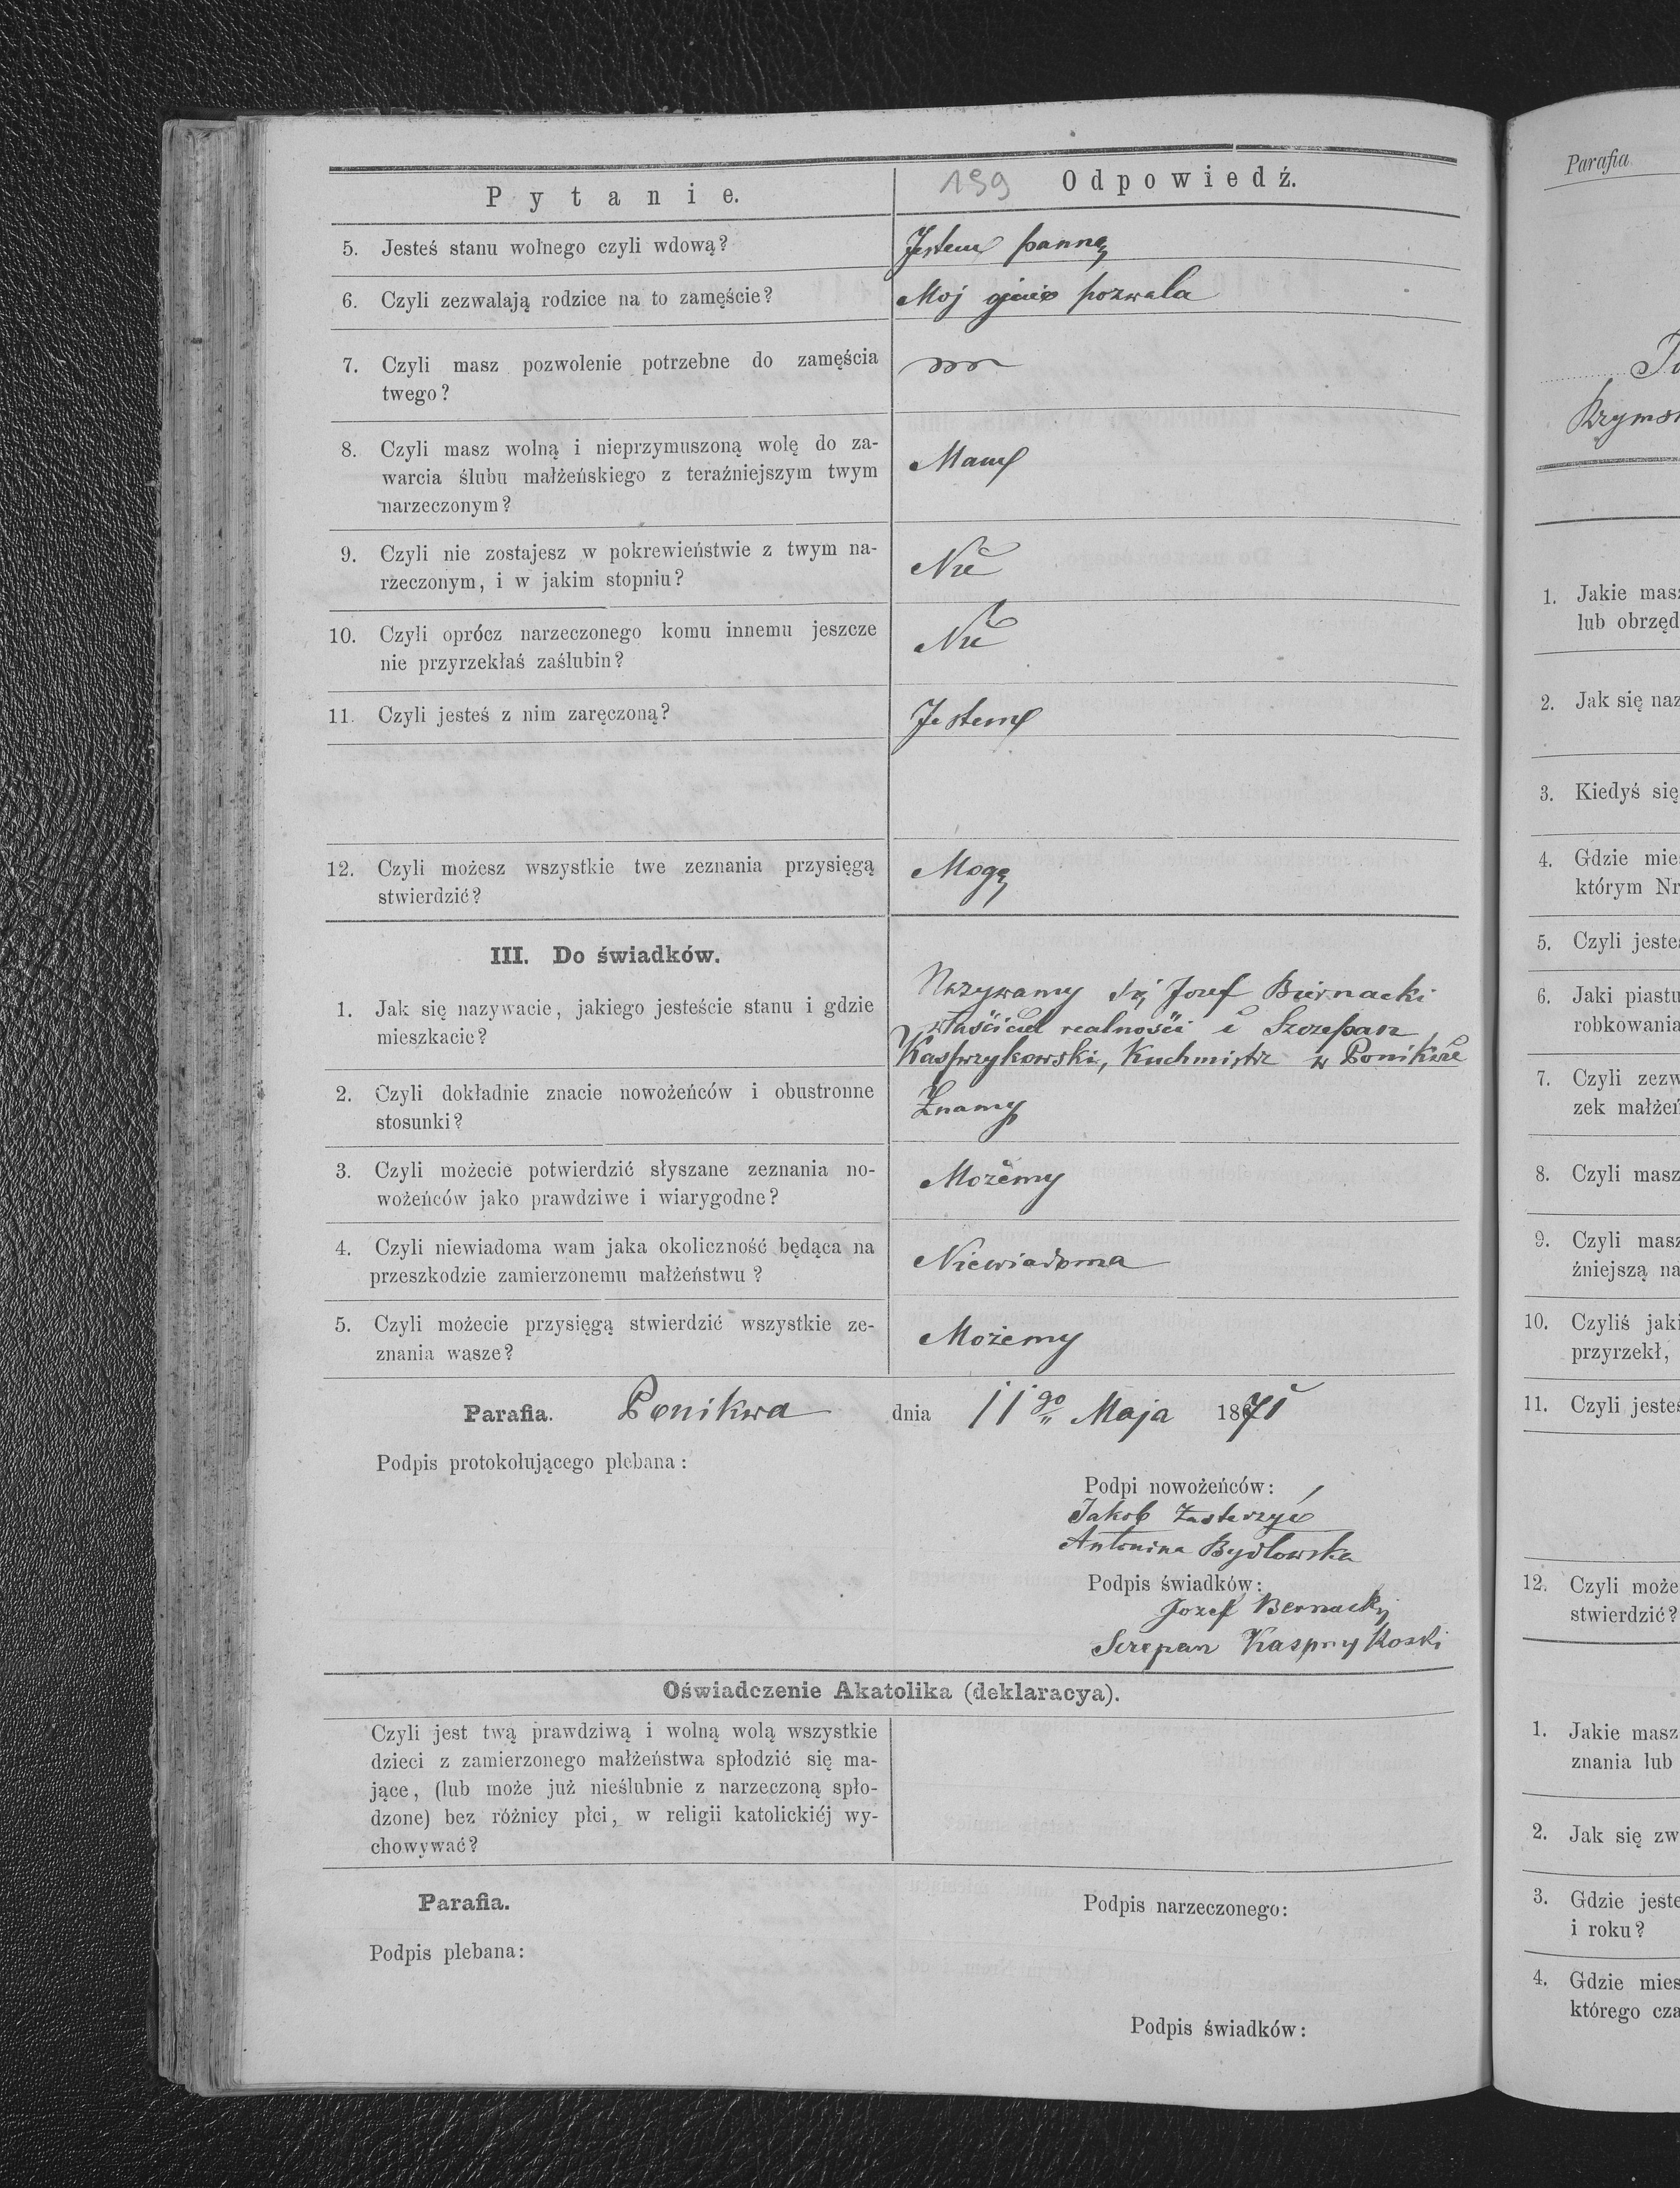 Pytanie.
139 Odpowiedź.
5. Jesteś stanu wolnego czyli wdową?
Jestem panną
6. Czyli zezwalają rodzice na to zamęście?
Moj pozwala
7. Czyli masz pozwolenie potrzebne do zamęścia
twego?
8. Czyli masz wolną i nieprzymuszoną wolę do za-
warcia ślubu małżeńskiego z teraźniejszym twym
narzeczonym?
Mam
9. Czyli nie zostajesz w pokrewieństwie z twym na-
rzeczonym, i w jakim stopniu?
Nie
10. Czyli oprócz narzeczonego komu innemu jeszcze
nie przyrzekłaś zaślubin?
Nie
11. Czyli jesteś z nim zaręczoną?
Jestem
12. Czyli możesz wszystkie twe zeznania przysięgą
stwierdzić?
Mogę
III. Do świadków.
1. Jak się nazywacie, jakiego jesteście stanu i gdzie
mieszkacie?
Nazywamy się Jozef Biernacki
właściciel realności i Szczepan
Kasprzykowski, Kuchmistrz w Ponikwie
2. Czyli dokładnie znacie nowożeńców i obustronne
stosunki?
Znamy
3. Czyli możecie potwierdzić słyszane zeznania no-
wożeńców jako prawdziwe i wiarygodne?
Możemy
4. Czyli niewiadoma wam jaka okoliczność będąca na
przeszkodzie zamierzonemu małżeństwu?
Niewiadoma
5. Czyli możecie przysięgą stwierdzić wszystkie ze-
znania wasze?
Możemy
Parafia. Ponikwa dnia 11go Maja 1871
Podpis protokołującego plebana:
Podpi nowożeńców:
Jakob
Antonina Bydłowska
Podpis świadków:
Jozef Bernacky
Szczepan Kasprzykoski
Oświadczenie Akatolika (deklaracya).
Czyli jest twą prawdziwą i wolną wolą wszystkie
dzieci z zamierzonego małżeństwa spłodzić się ma-
jące, (lub może już nieślubnie z narzeczoną spło-
dzone) bez różnicy płci, w religii katolickiéj wy-
chowywać?
Parafia.
Podpis narzeczonego:
Podpis plebana:
Podpis świadków:
Parafia
Krymsk
1. Jakie masz
lub obrzęd
2. Jak się naz
3. Kiedyś się
4. Gdzie mie
którym Nr
5. Czyli jeste
6. Jaki piastu
robkowania
7. Czyli zezw
zek małżeń
8. Czyli masz
9. Czyli masz
źniejszą na
10. Czyliś jaki
przyrzekł,
11. Czyli jesteś
12. Czyli może
stwierdzić?
1. Jakie masz
znania lub
2. Jak się zw
3. Gdzie jeste
i roku?
4. Gdzie mies
którego cza